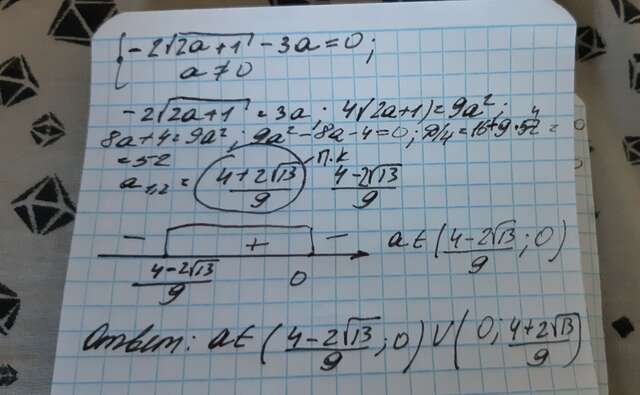 { -2√(2a+1) - 3a = 0;
a ≠ 0
-2√(2a+1) = 3a; 4(2a+1) = 9a²;
8a+4=9a²; 9a²-8a-4=0; D/4=16+9·4=
=52
a₁,₂ = (4+2√13)/9 п.к (4-2√13)/9
- + -
(4-2√13)/9 0 a∈((4-2√13)/9; 0)
Ответ: a∈((4-2√13)/9; 0) ∪ (0; (4+2√13)/9)